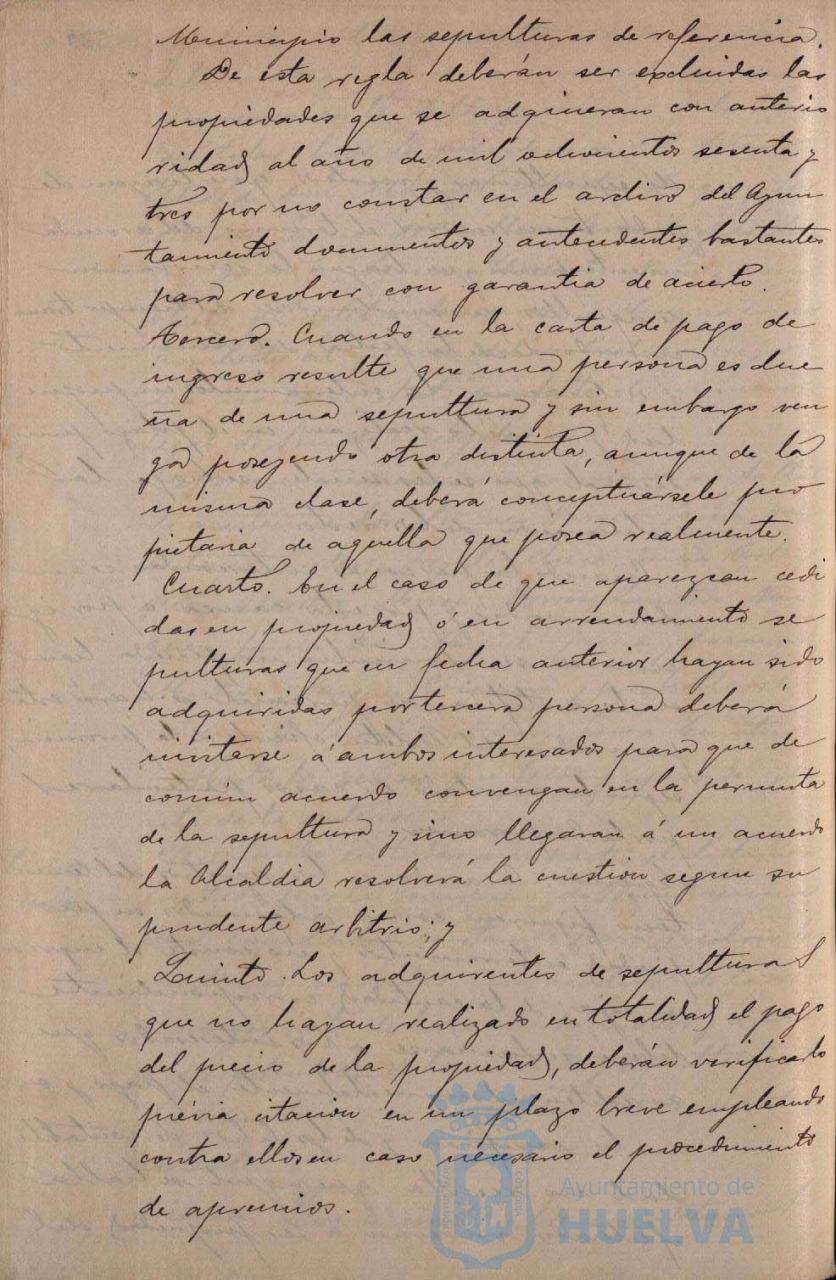 Municipio las sepulturas de referencia.
De esta regla deberán ser excluidas las
propiedades que se adquieran con anterio
ridad al año de mil ochocientos sesenta y
tres por no constar en el archivo del Ayun
tamiento documentos y antecedentes bastantes
para resolver con garantia de acierto.
Tercero. Cuando en la carta de pago de
ingreso resulte que una persona es due
ña de una sepultura y sin embargo ven
ga poseyendo otra distinta, aunque de la
misma clase, deberá conceptuársele pro
pietaria de aquella que posea realmente.
Cuarto. En el caso de que aparezcan cedi
das en propiedad ó en arrendamiento se
pulturas que en fecha anterior hayan sido
adquiridas por tercera persona deberá
invitarse á ambos interesados para que de
comun acuerdo convengan en la permuta
de la sepultura y sino llegaran á un acuerdo
la Alcaldia resolverá la cuestion segun su
prudente arbitrio; y
Quinto. Los adquirentes de sepulturas
que no hayan realizado en totalidad el pago
del precio de la propiedad, deberán verificarlo
prévia citacion en un plazo breve empleando
contra ellos en caso necesario el procedimiento
de apremios.
Ayuntamiento de
HUELVA